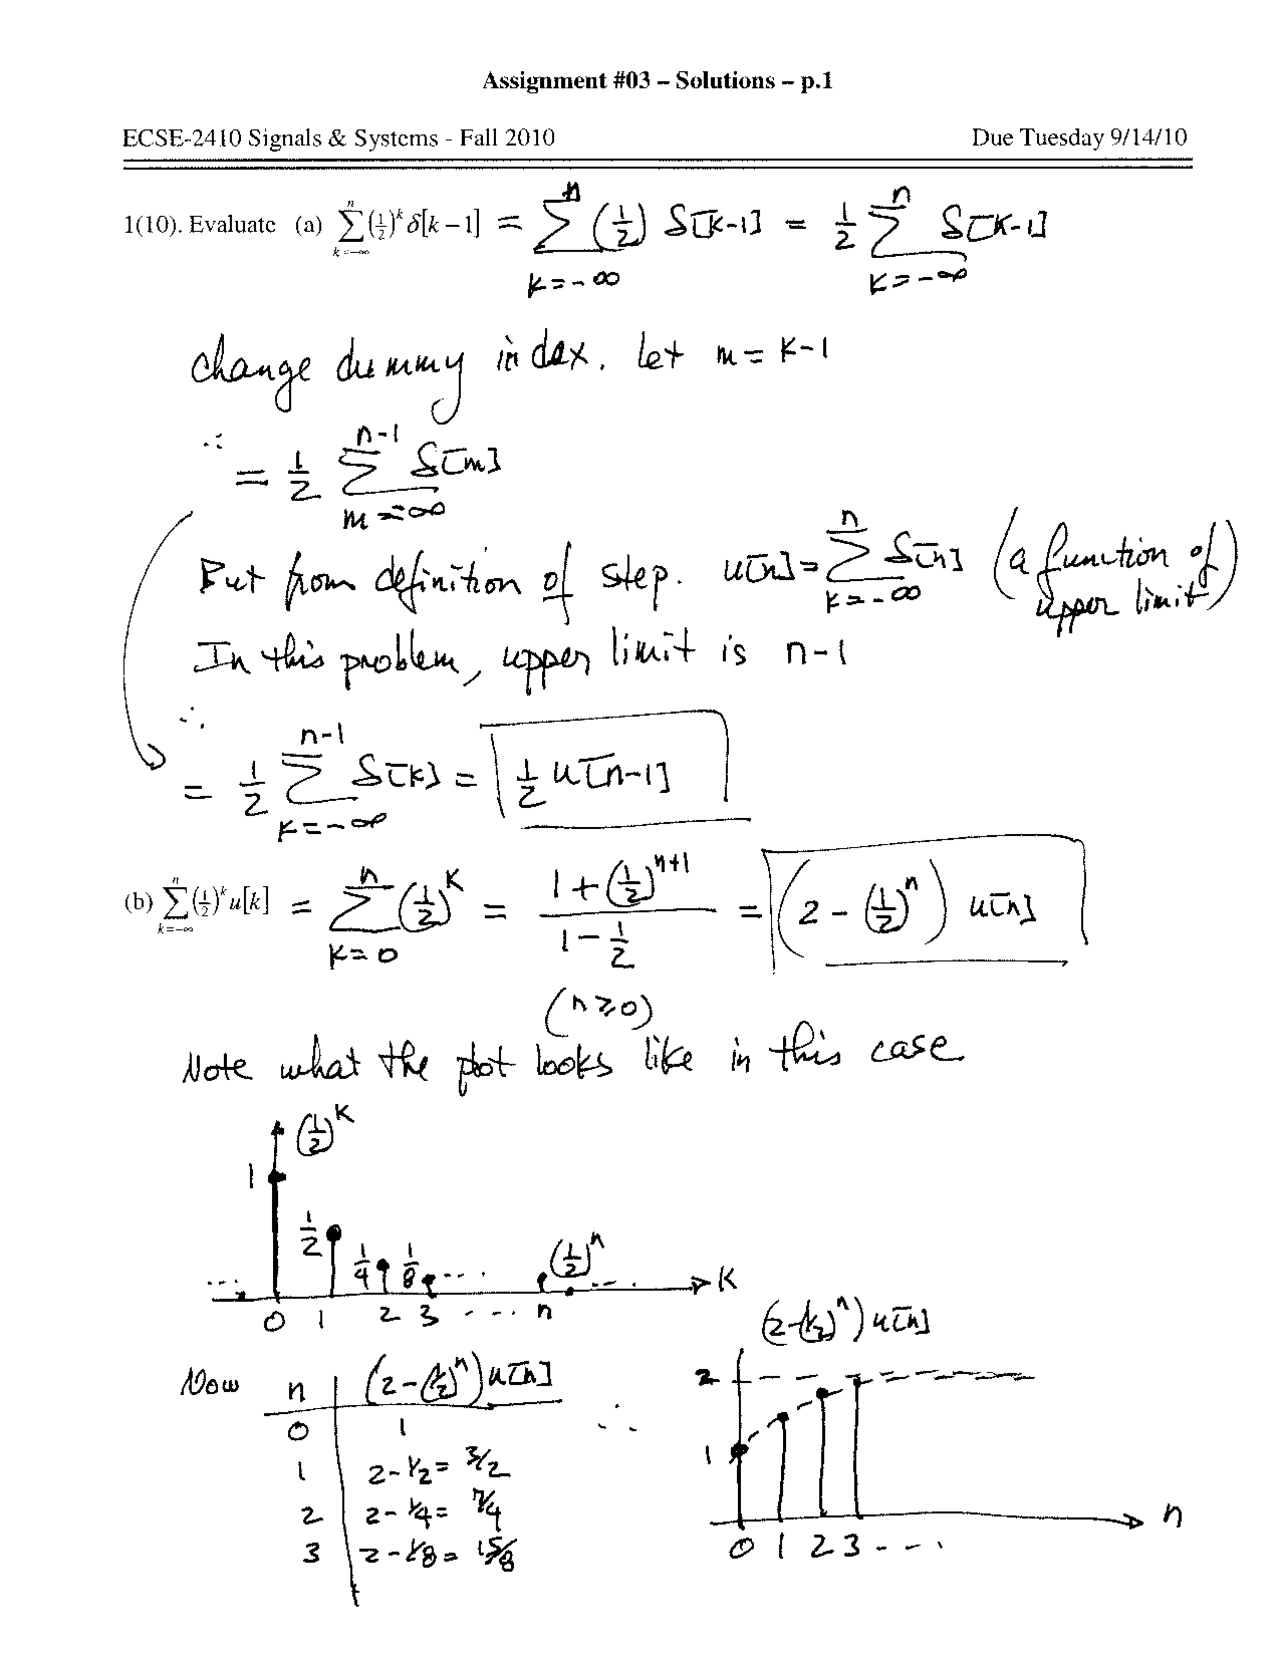 Assignment #03 – Solutions – p.1
ECSE-2410 Signals & Systems - Fall 2010 Due Tuesday 9/14/10
1(10). Evaluate (a) ∑_{k=-∞}^{n} (1/2)^k δ[k−1] = ∑_{k=-∞}^{n} (1/2) δ[k-1] = 1/2 ∑_{k=-∞}^{n} δ[k-1]
change dummy index. Let m = k-1
∴ = 1/2 ∑_{m=-∞}^{n-1} δ[m]
But from definition of step. u[n] = ∑_{k=-∞}^{n} δ[n] (a function of upper limit)
In this problem, upper limit is n-1
∴
= 1/2 ∑_{k=-∞}^{n-1} δ[k] = 1/2 u[n-1]
(b) ∑_{k=-∞}^{n} (1/2)^k u[k] = ∑_{k=0}^{n} (1/2)^k = (1+(1/2)^{n+1})/(1-1/2) = (2-(1/2)^n) u[n]
(n≥0)
Note what the plot looks like in this case
(1/2)^k
1
1/2 1/4 1/8 .... (1/2)^n ....
... k
0 1 2 3 .... n
(2-(1/2)^n) u[n]
Now n (2-(1/2)^n) u[n]
0 1
1 2-1/2 = 3/2
2 2-1/4 = 7/4
3 2-1/8 = 15/8
∴
2
1
n
0 1 2 3 ....